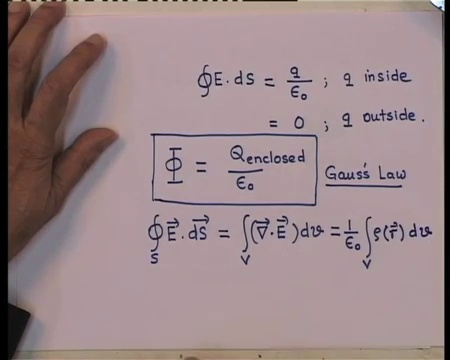 ∮E.dS = q/ε₀ ; q inside
= 0 ; q outside.
Φ = Q enclosed/ε₀ Gauss's Law
∮_S E⃗.dS⃗ = ∫_V (∇⃗.E⃗)dv = 1/ε₀ ∫_V ρ(r⃗) dv